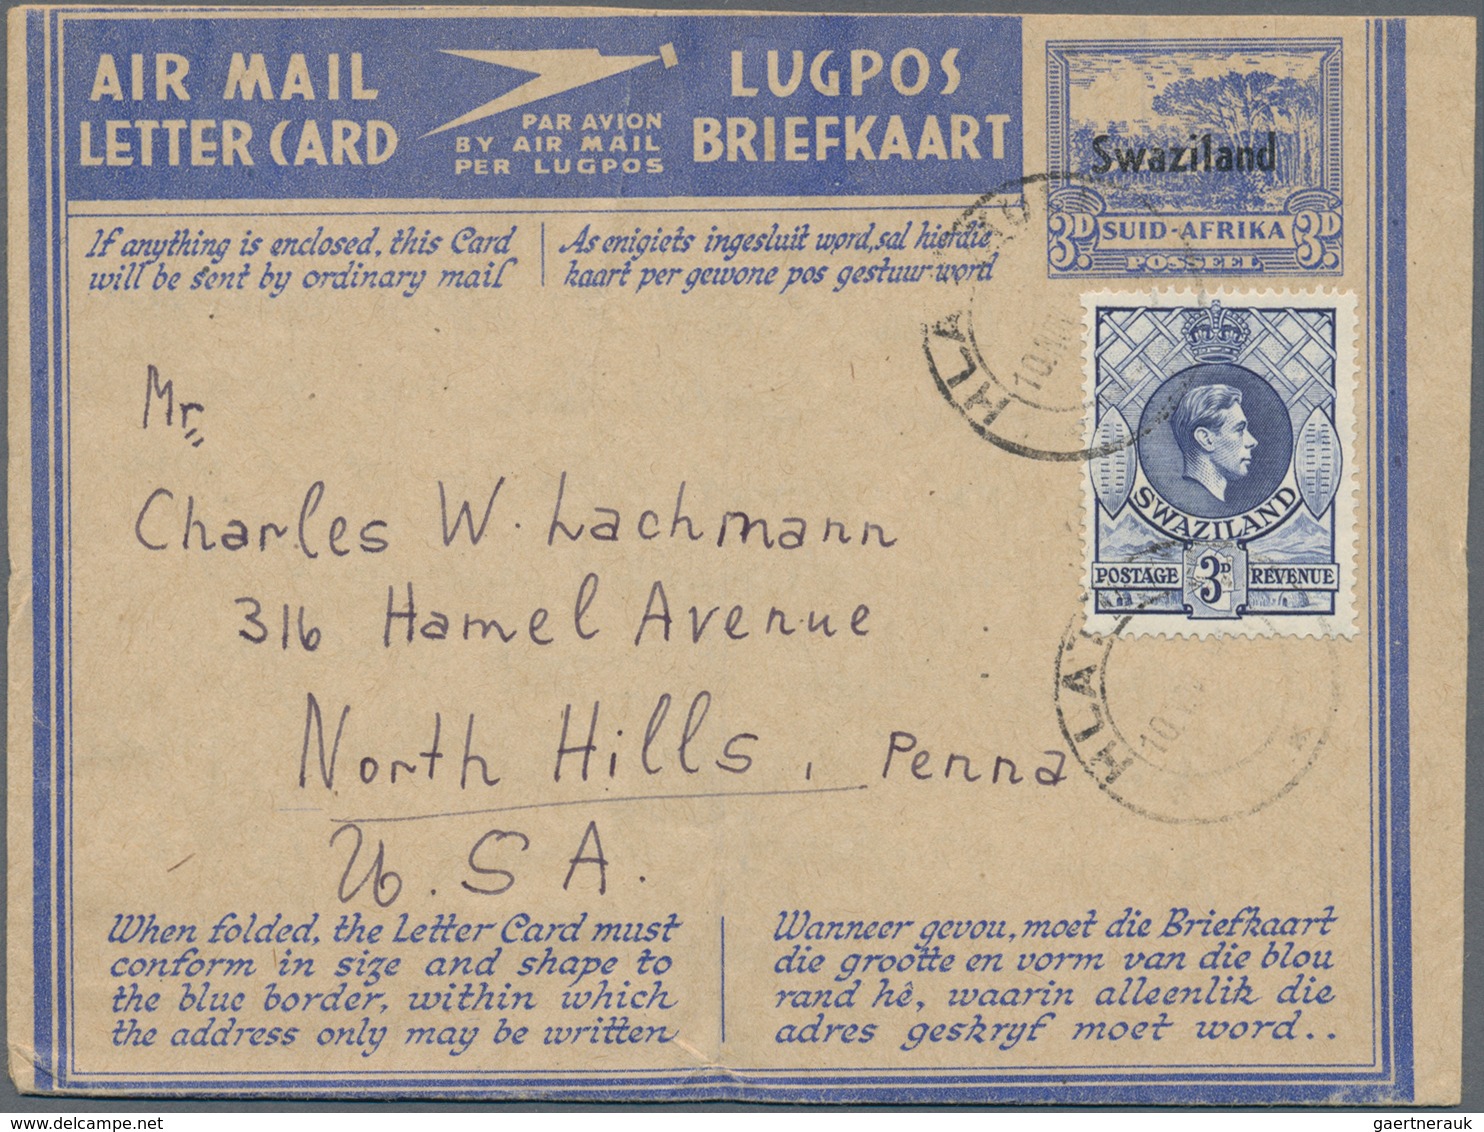 AIR MAIL
LETTER CARD
PAR AVION
BY AIR MAIL
PER LUGPOS
LUGPOS
BRIEFKAART
Swaziland
3D. SUID-AFRIKA 3D.
POSSEEL
If anything is enclosed, this Card
will be sent by ordinary mail
As enigiets ingesluit word, sal hierdie
kaart per gewone pos gestuur word
SWAZILAND
POSTAGE 3D REVENUE
Mr,,
Charles W. Lachmann
316 Hamel Avenue
North Hills, Penna
U.S A.
When folded, the Letter Card must
conform in size and shape to
the blue border, within which
the address only may be written
Wanneer gevou, moet die Briefkaart
die grootte en vorm van die blou
rand hê, waarin alleenlik die
adres geskryf moet word..
gaertnerauk @ delcampe.net